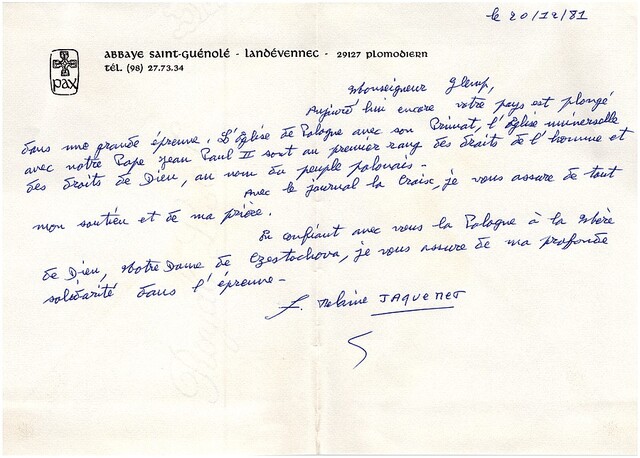 le 20/12/81
ABBAYE SAINT-GUÉNOLÉ - LANDÉVENNEC - 29127 PLOMODIERN
TÉL. (98) 27.73.34
PAX
Monseigneur Glemp,
Aujourd'hui encore votre pays est plongé
dans une grande épreuve. L'Église de Pologne avec son Primat, l'Église universelle
avec notre Pape Jean Paul II sont au premier rang des droits de l'homme et
des droits de Dieu, au nom du peuple polonais.
Avec le journal la Croix, je vous assure de tout
mon soutien et de ma prière.
En confiant avec vous la Pologne à la Mère
de Dieu, Notre Dame de Czestochova, je vous assure de ma profonde
solidarité dans l'épreuve -
f. Melaine JAQUENET